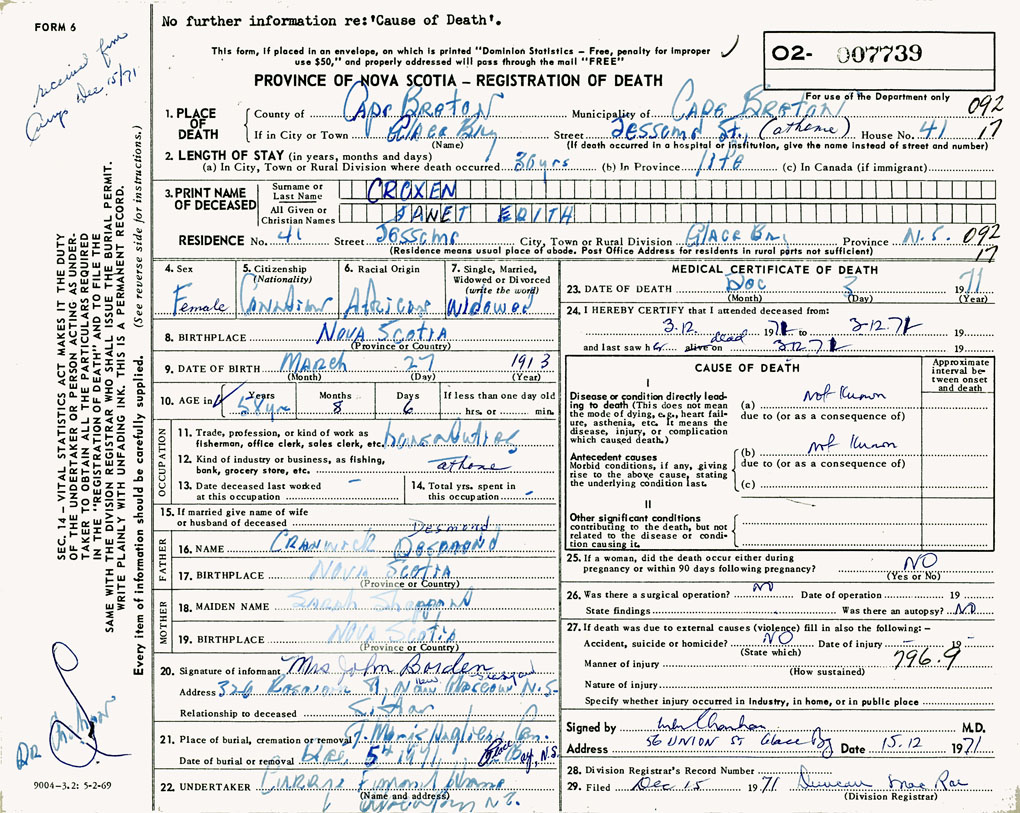 FORM 6
No further information re:'Cause of Death'.
received from
Dec. 15/71
This form, if placed in an envelope, on which is printed "Dominion Statistics – Free, penalty for improper
use $50," and properly addressed will pass through the mail "FREE"
02- 007739
PROVINCE OF NOVA SCOTIA – REGISTRATION OF DEATH
For use of the Department only
092
17
1. PLACE OF DEATH
County of Cape Breton Municipality of Cape Breton
If in City or Town Glace Bay Street Jessome St., (at home) House No. 41
(Name) (If death occurred in a hospital or institution, give the name instead of street and number)
2. LENGTH OF STAY (in years, months and days)
(a) In City, Town or Rural Division where death occurred 30 yrs (b) In Province life (c) In Canada (if immigrant)
3. PRINT NAME OF DECEASED
Surname or Last Name CROXEN
All Given or Christian Names JANET EDITH
RESIDENCE No. 41 Street Jessome City, Town or Rural Division Glace Bay Province N.S. 092
(Residence means usual place of abode. Post Office Address for residents in rural parts not sufficient) 17
4. Sex Female
5. Citizenship (Nationality) Canadian
6. Racial Origin African
7. Single, Married, Widowed or Divorced (write the word) Widowed
8. BIRTHPLACE Nova Scotia
(Province or Country)
9. DATE OF BIRTH March 27 1913
(Month) (Day) (Year)
10. AGE in Years 58 yrs Months 8 Days 6 If less than one day old hrs. or min.
OCCUPATION
11. Trade, profession, or kind of work as
fisherman, office clerk, sales clerk, etc. house duties
12. Kind of industry or business, as fishing,
bank, grocery store, etc. at home
13. Date deceased last worked
at this occupation –
14. Total yrs. spent in
this occupation –
15. If married give name of wife
or husband of deceased
Desmond
FATHER
16. NAME Desmond
17. BIRTHPLACE Nova Scotia
(Province or Country)
MOTHER
18. MAIDEN NAME Sarah Sheppard
19. BIRTHPLACE Nova Scotia
(Province or Country)
20. Signature of informant Mrs John Borden
Address 326 N.S.
New Glasgow
Relationship to deceased Sister
21. Place of burial, cremation or removal
Date of burial or removal Dec 5th 1971 N.S.
22. UNDERTAKER
(Name and address)
MEDICAL CERTIFICATE OF DEATH
23. DATE OF DEATH Dec 3 1971
(Month) (Day) (Year)
24. I HEREBY CERTIFY that I attended deceased from:
3.12. 1971 to 3-12.71 19
and last saw her alive on dead 3.12.71 19
CAUSE OF DEATH
Approximate interval between onset and death
I
Disease or condition directly leading
to death (This does not mean
the mode of dying, e.g., heart failure,
asthenia, etc. It means the
disease, injury, or complication
which caused death.)
(a) Not Known
due to (or as a consequence of)
Antecedent causes
Morbid conditions, if any, giving
rise to the above cause, stating
the underlying condition last.
(b) Not Known
due to (or as a consequence of)
(c)
II
Other significant conditions
contributing to the death, but not
related to the disease or condition
causing it.
25. If a woman, did the death occur either during
pregnancy or within 90 days following pregnancy? NO
(Yes or No)
26. Was there a surgical operation? NO Date of operation 19
State findings Was there an autopsy? NO
27. If death was due to external causes (violence) fill in also the following: –
Accident, suicide or homicide? NO Date of injury – 19 –
(State which)
796.9
Manner of injury
(How sustained)
Nature of injury
Specify whether injury occurred in industry, in home, or in public place
Signed by M.D.
Address 56 UNION St Glace Bay Date 15.12 1971
28. Division Registrar's Record Number
29. Filed Dec 15 1971 Duncan MacRae
(Division Registrar)
SEC. 14 – VITAL STATISTICS ACT MAKES IT THE DUTY
OF THE UNDERTAKER OR PERSON ACTING AS UNDERTAKER
TO OBTAIN ALL THE PARTICULARS REQUIRED
IN THE "REGISTRATION OF DEATH" AND TO FILE THE
SAME WITH THE DIVISION REGISTRAR WHO SHALL ISSUE THE BURIAL PERMIT.
WRITE PLAINLY WITH UNFADING INK. THIS IS A PERMANENT RECORD.
Every item of information should be carefully supplied. (See reverse side for instructions.)
DR
9004-3.2: 5-2-69